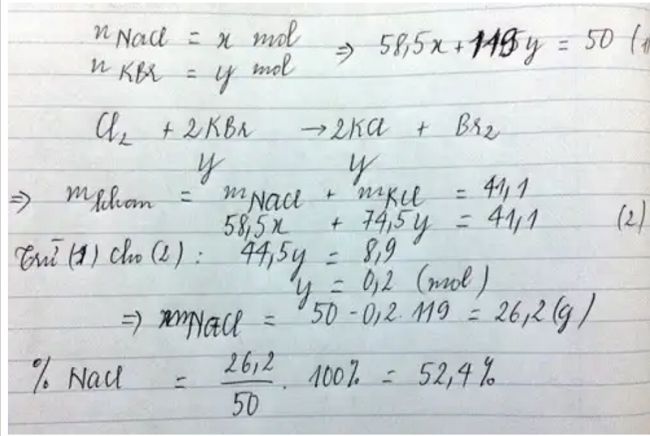 n NaCl = x mol
n KBr = y mol
=> 58,5x + 119y = 50 (1
Cl₂ + 2KBr → 2KCl + Br₂
y y
=> m khan = m NaCl + m KCl = 41,1
58,5x + 74,5y = 41,1 (2)
Trừ (1) cho (2) : 44,5y = 8,9
y = 0,2 (mol)
=> m NaCl = 50 - 0,2. 119 = 26,2 (g)
% NaCl = 26,2/50 . 100% = 52,4%